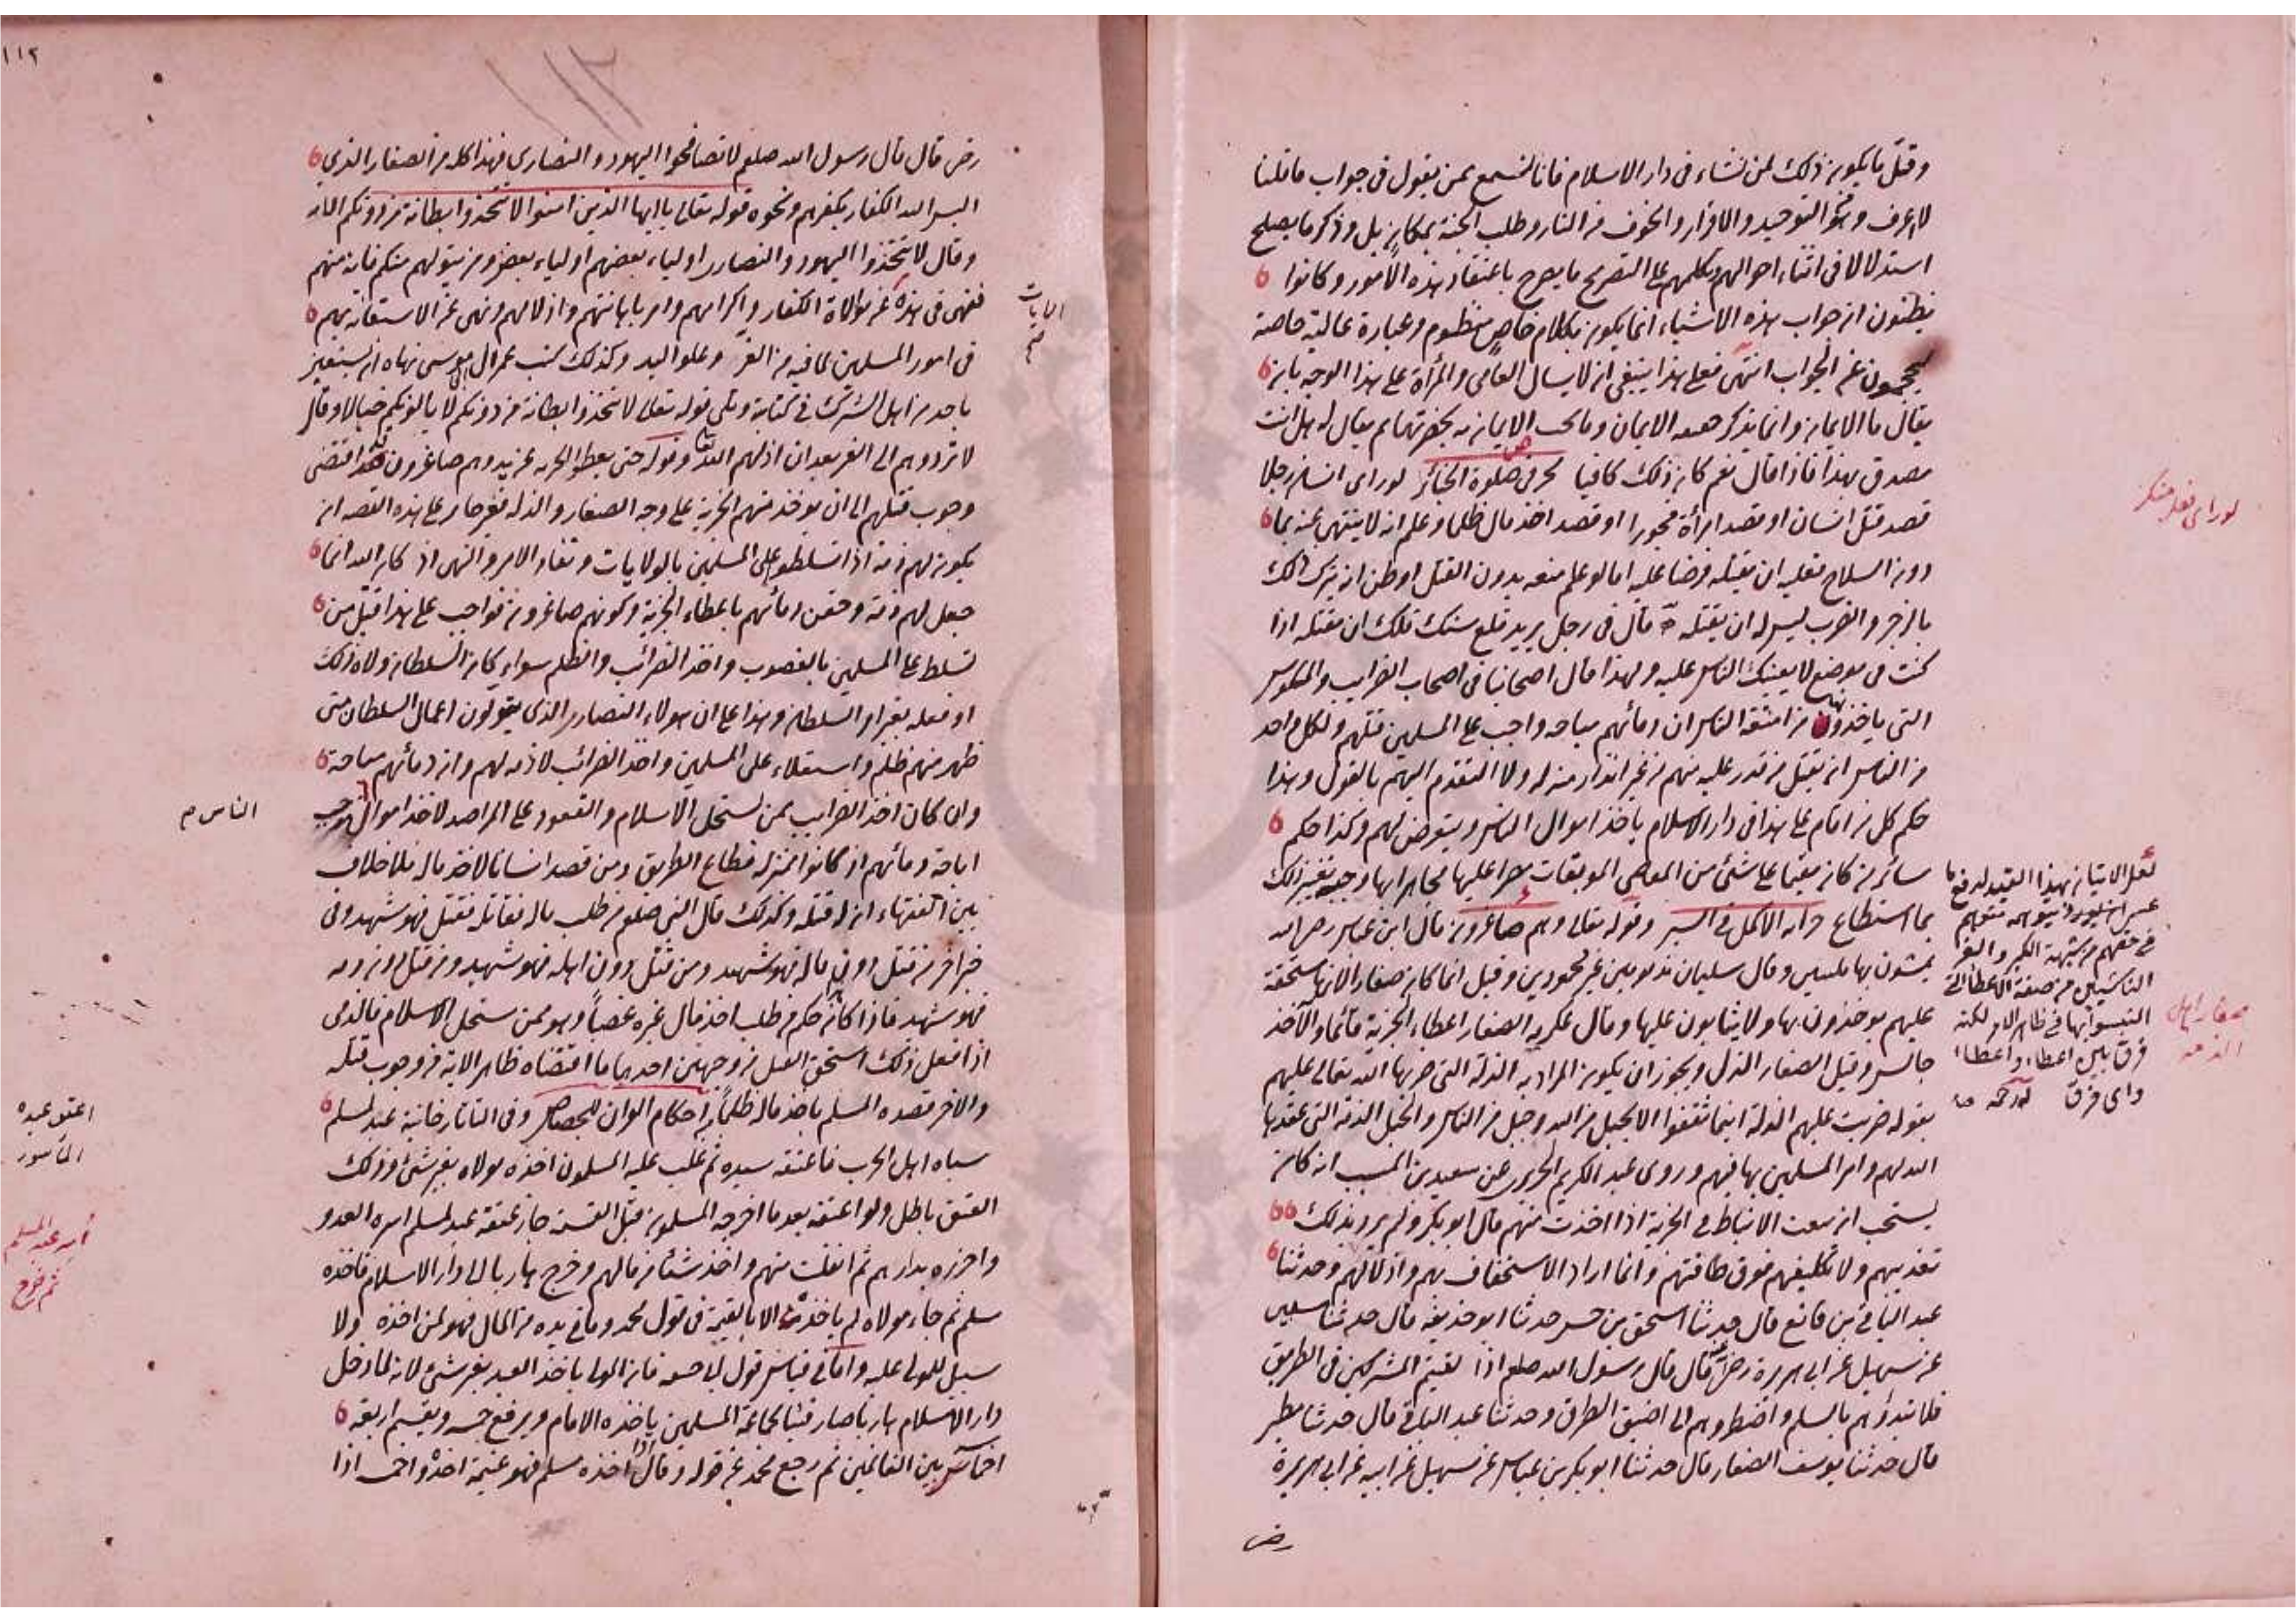 وقل ما يكون ذلك لمن نشاء فى دار الاسلام فانا نسمع ممن يقول فى جواب ما قلنا
لا اعرف وهو التوحيد والاقرار والخوف من النار وطلب الجنة بمكان بل وذكر ما يصلح
استدلالا فى اثناء احوالهم وتكلمهم على التصريح ما يصرح باعتقاد هذه الامور وكانوا
يظنون ان جواب هذه الاشياء انما يكون بكلام خاص منظوم وعبارة عالية خاصة
فيحجمون عن الجواب انتهى فعلى هذا ينبغى ان لا يسال العامى والمرأة على هذا الوجه بان
يقال ما الايمان وانما يذكر حقيقة الايمان وما يجب الايمان به بحضرتهما ثم يقال له هل انت
مصدق بهذا فاذا قال نعم كان ذلك كافيا بحر فى صلوة الجنائز لو راى انسان رجلا
قصد قتل انسان او قصد امرأة فجورا او قصد اخذ مال ظلما وعلم انه لا ينتهى عنه بما
دون السلاح فعليه ان يقتله فرضا عليه اما لو علم منعه بدون القتل او ظن انه يترك ذلك
بالزجر والضرب ليس له ان يقتله قال فى رجل يريد قلع سنك فلك ان تقتله اذا
كنت فى موضع لا يعينك الناس عليه ولهذا قال اصحابنا فى اصحاب الضرايب والمكوس
التى ياخذونها من امتعة الناس ان دمائهم مباحه واجب على المسلمين قتلهم ولكل واحد
من الناس ان يقتل من قدر عليه منهم من غير انذار منه له ولا التقدم اليهم بالقول وهذا
حكم كل من اقام على هذا فى دار الاسلام ياخذ اموال الناس ويتعرض لهم وكذا حكم
سائر من كان مقيما على شئ من المعاصى الموبقات مصرا عليها مجاهرا بها وجب تغيير ذلك
بما استطاع وقوله تعالى وهم صاغرون قال ابن عباس رضى الله
يمشون بها ملببين وقال سليمان مذمومين غير محمودين وقيل انما كان صغارا لانها مستحقة
عليهم يوخذون بها ولا يثابون عليها وقال عكرمه الصغار اعطاء الجزية قائما والآخذ
جالس وقيل الصغار الذل ويجوز ان يكون المراد به الذلة التى ضربها الله تعالى عليهم
بقوله ضربت عليهم الذلة اينما ثقفوا الا بحبل من الله وحبل من الناس والحبل الذمة التى عهدها
الله لهم وامر المسلمين بها فيهم وروى عبد الكريم الجزرى عن سعيد بن المسيب انه كان
يستحب ان يتعب الانباط فى الجزية اذا اخذت منهم قال ابو بكر ولم يرد بذلك
تعذيبهم ولا تكليفهم فوق طاقتهم وانما اراد الاستخفاف بهم واذلالهم وحدثنا
عبد الباقى بن قانع قال حدثنا اسحق بن الحسن حدثنا ابو حذيفه قال حدثنا سفيان
عن سهيل عن ابى هريرة رضى قال قال رسول الله صلعم اذا لقيتم المشركين فى الطريق
فلا تبدؤاهم بالسلم واضطروهم الى اضيق الطرق وحدثنا عبد الباقى قال حدثنا مطير
قال حدثنا يوسف الصفار قال حدثنا ابو بكر بن عياش عن سهيل عن ابيه عن ابى هريرة
رض
لو راى فعل منكر
صغار اهل
الذمه
١١٢
رض قال قال رسول الله صلعم لا تصافحوا اليهود والنصارى فهذا كله من الصغار الذى
البس الله الكفار بكفرهم ونحوه قوله تعالى يا ايها الذين امنوا لا تتخذوا بطانة من دونكم الايه
وقال لا تتخذوا اليهود والنصارى اولياء بعضهم اولياء بعض ومن يتولهم منكم فانه منهم
فنهى فى هذه الايات عن موالاة الكفار واكرامهم وامر باهانتهم واذلالهم ونهى عن الاستعانة بهم
فى امور المسلمين لما فيه من العز وعلو اليد وكذلك كتب عمر الى ابى موسى ينهاه ان يستعين
باحد من اهل الشرك فى كتابة وتلى قوله تعالى لا تتخذوا بطانة من دونكم لا يالونكم خبالا وقال
لا تردوهم الى العز بعد ان اذلهم الله وقوله حتى يعطوا الجزيه عن يد وهم صاغرون قد اقتضى
وجوب قتلهم الى ان يوخذ منهم الجزية على وجه الصغار والذلة فغير جايز على هذه القصه ان
يكون لهم ذمة اذا تسلطوا على المسلمين بالولايات ونفاذ الامر والنهى اذ كان الله انما
جعل لهم ذمة وحقن دمائهم باعطاء الجزية وكونهم صاغرون فواجب على هذا قتل من
تسلط على المسلمين بالغصوب واخذ الضرائب والظلم سواء كان السلطان ولاه ذلك
او فعله بغير امر السلطان وهذا على ان هولاء النصارى الذى يتولون اعمال السلطان متى
ظهر منهم ظلم واستعلاء على المسلمين واخذ الضرائب لا ذمة لهم وان دمائهم مباحة
وان كان اخذ الضرايب ممن ينتحل الاسلام والقعود على المراصد لاخذ اموال الناس يوجب
اباحة دمائهم اذ كانوا بمنزلة قطاع الطريق ومن قصد انسانا لاخذ ماله فلا خلاف
بين الفقهاء ان له قتله وكذلك قال النبى صلعم من طلب ماله فقاتله فقتل فهو شهيد وفى
خبر اخر من قتل دون ماله فهو شهيد ومن قتل دون اهله فهو شهيد ومن قتل دون دمه
فهو شهيد فاذا كان حكم من طلب اخذ مال غيره غصبا وهو ممن ينتحل الاسلام فالذمى
اذا فعل ذلك استحق القتل من وجهين احدهما ما اقتضاه ظاهر الاية من وجوب قتله
والآخر قصده المسلم باخذ ماله ظلما احكام القران للجصاص وفى التاتارخانية عبد لمسلم
سباه اهل الحرب فاعتقه سيده ثم غلب عليه المسلمون اخذه مولاه بغير شئ وذلك
العتق باطل ولو اعتقه بعد ما اخرجه المسلمون قبل القسمة جاز عتقه عبد لمسلم اسره العدو
واحرزه بدارهم ثم انفلت منهم واخذ شيئا من مالهم وخرج هاربا الى دار الاسلام فاخذه
مسلم ثم جاء مولاه لم ياخذه الا بالقيمة فى قول محمد وما فى يده من المال فهو لمن اخذه ولا
سبيل للمولى عليه واما فى قياس قول ابى حنيفه فان المولى ياخذ العبد بغير شئ لانه لما دخل
دار الاسلام هاربا صار فيئا لجماعة المسلمين ياخذه الامام ويرفع خمسه ويقسم اربعة
اخماس بين الغانمين ثم رجع محمد عن قوله وقال اذا اخذه مسلم فهو غنيمة اخذه واخمسه اذا
اعتق عبده
المأسور
اسر عبد المسلم
ثم خرج